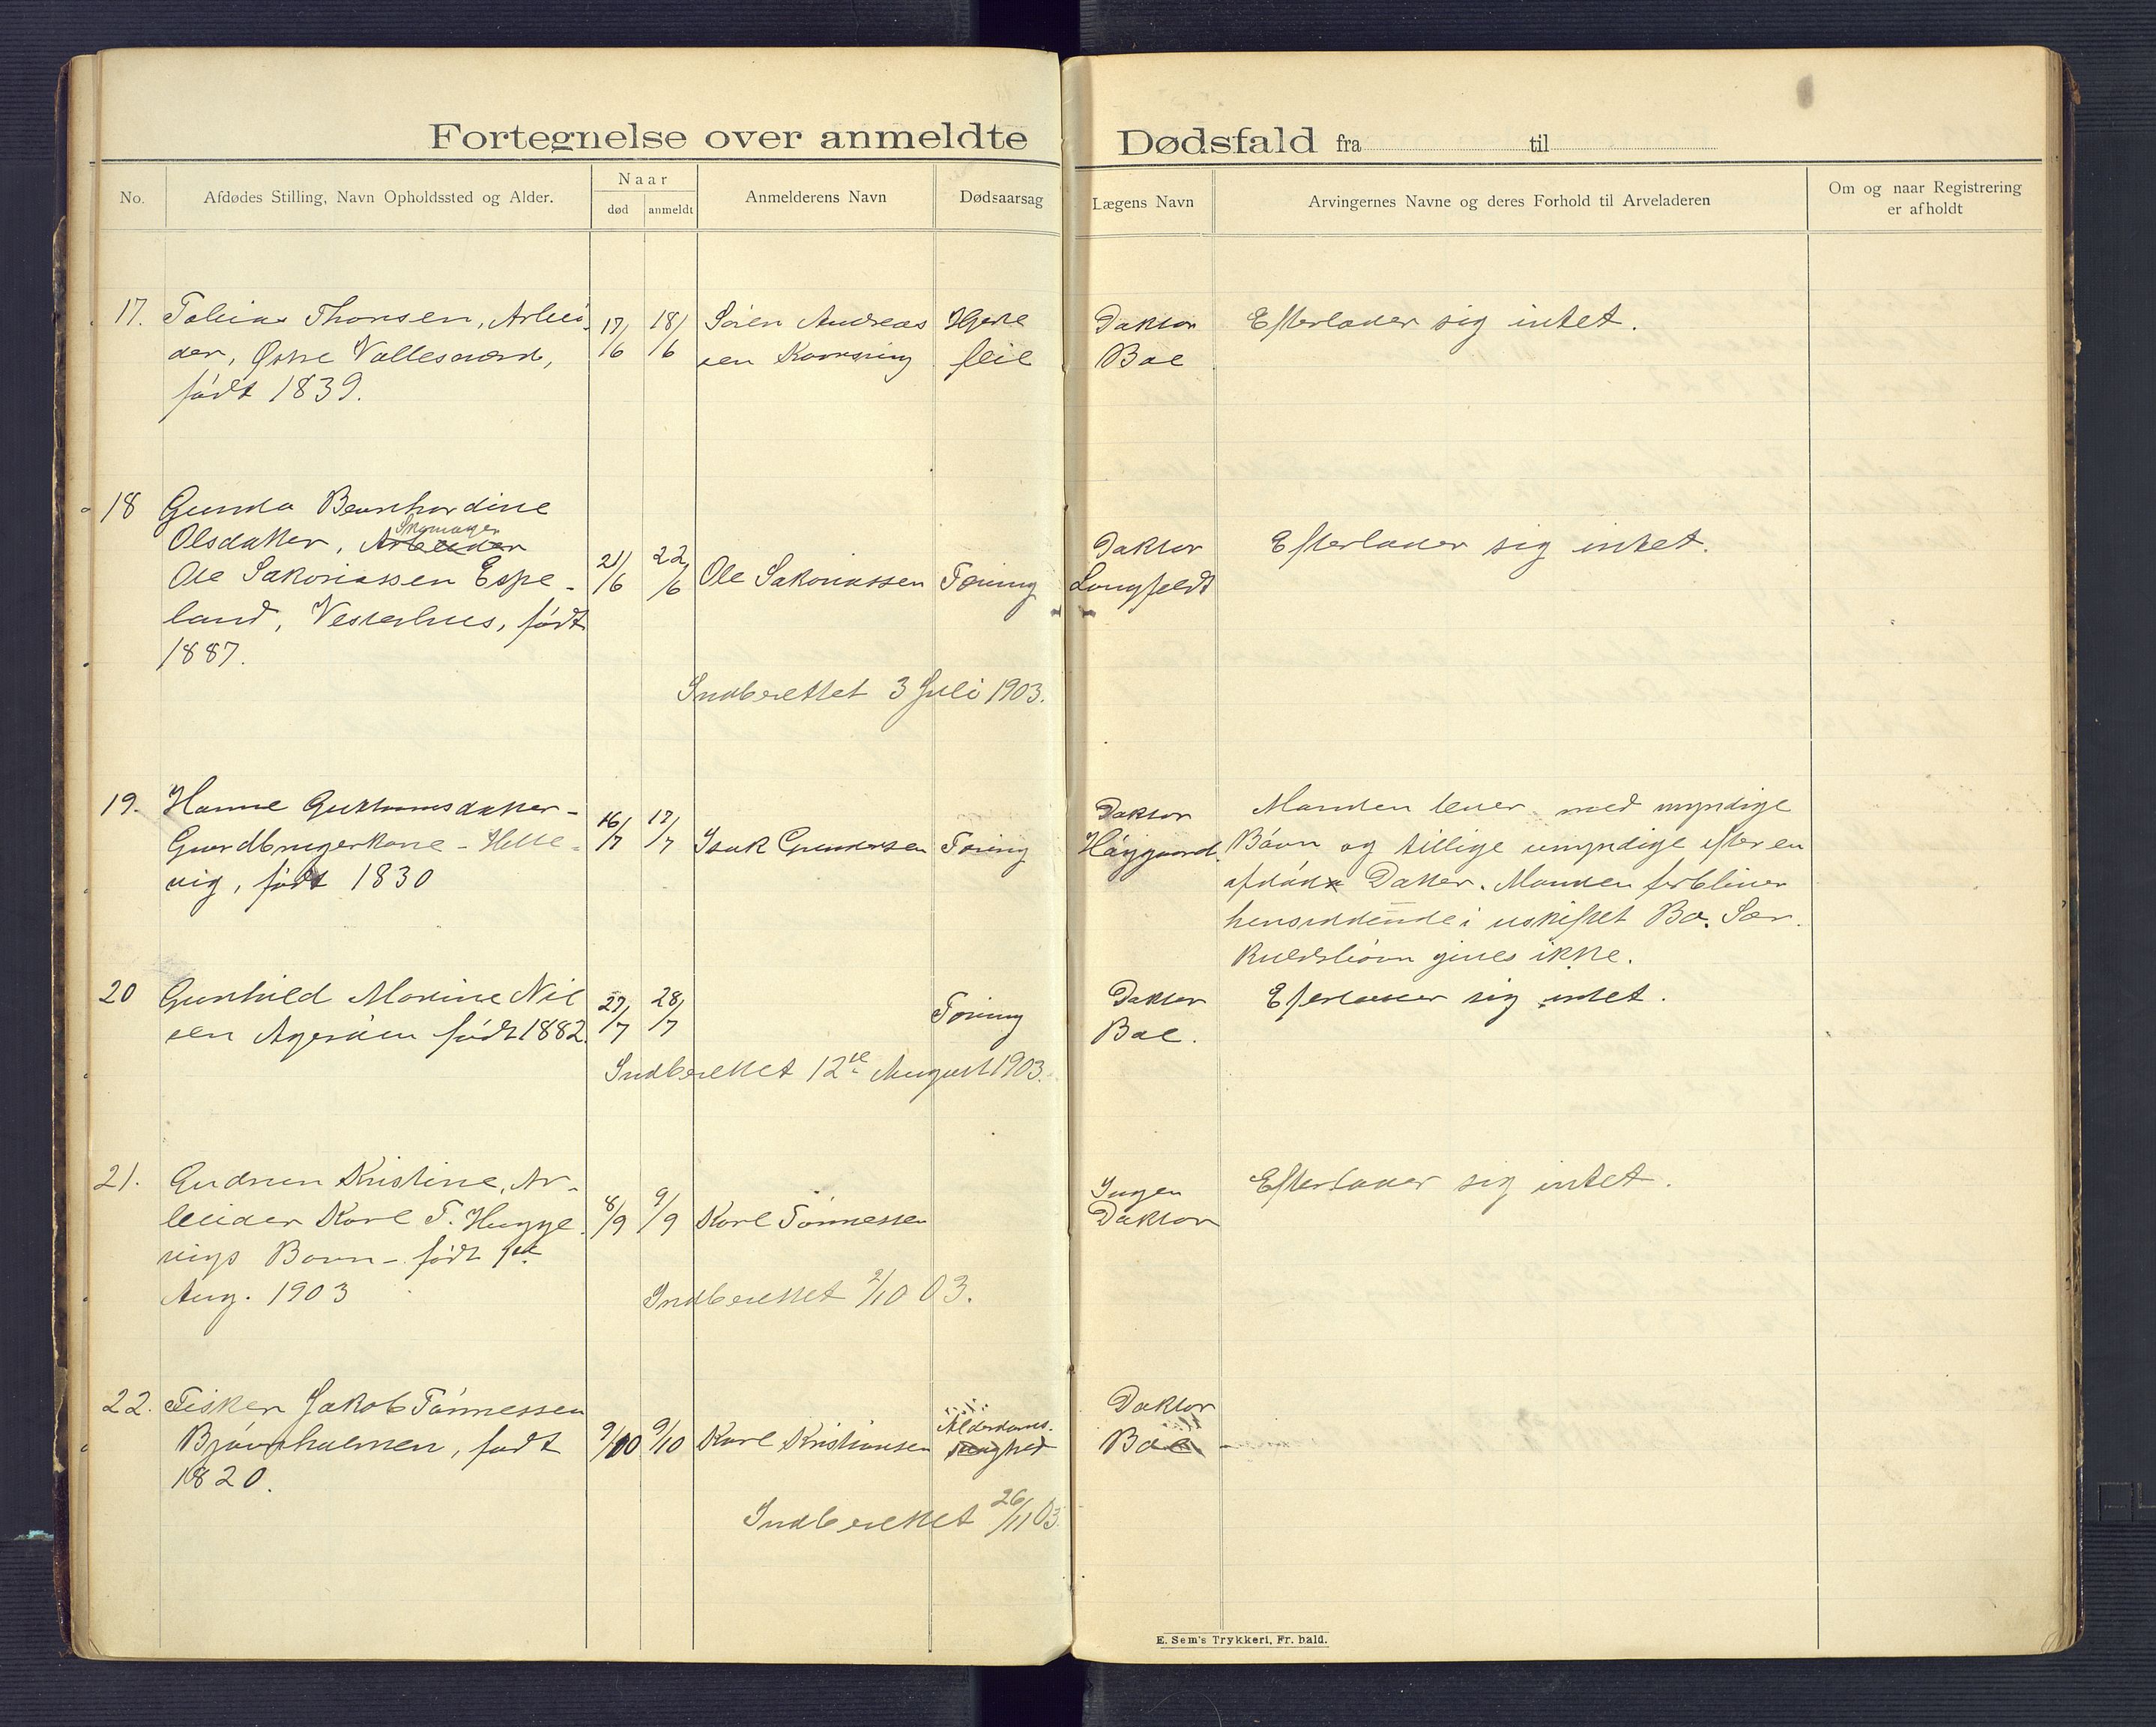 Fortegnelse over anmeldte Dødsfald fra til
No.
Afdødes Stilling, Navn Opholdssted og Alder.
Naar
død
anmeldt
Anmelderens Navn
Dødsaarsag
Lægens Navn
Arvingernes Navne og deres Forhold til Arveladeren
Om og naar Registrering
er afholdt
17. Tobias Thorsen, Arbei- 17/6 18/6 Sören Andreas Hjerte Doktor Efterlader sig intet.
der, Østre Vallesværd, sen feil Boe
født 1839.
18 Gunda Bernhardine
Skomager
Olsdatter, Arbeider Doktor Efterlader sig intet.
Ole Sakariassen Espe- 21/6 22/6 Ole Sakariassen Tæring Longfeldt
land, Vesterhus, født
1887.
Indberettet 3 Juli 1903.
19. Hanne Guttormsdatter - 16/7 17/7 Doktor Manden lever med myndige
Gaardbrugerkone - Helle- Isak Gundersen Tæring Høygaard. Børn og tillige umyndige efter en
vig, født 1830 afdöd Datter. Manden forbliver
hensiddende i uskiftet Bo. Sær-
kuldsbörn gives ikke.
20 Gunhild Marine Nil 27/7 28/7 Tæring Doktor Efterlader sig intet.
sen Ageröen født 1882. Boe.
Indberettet 12te August 1903.
21. Gudrun Kristine, Ar- Ingen Efterlader sig intet.
beider Karl T. Hugge- 8/9 9/9 Karl Tönnessen Doktor
vigs Barn - født 1ste
Aug. 1903
Indberettet 2/10 03.
22. Fisker Jakob Tönnessen Alderdoms- Doktor
Bjørnholmen, født 9/10 9/10 Karl Kristiansen svaghed Boe -
1820.
Indberettet 26/11 03.
E. Sem's Trykkeri, Fr.hald.